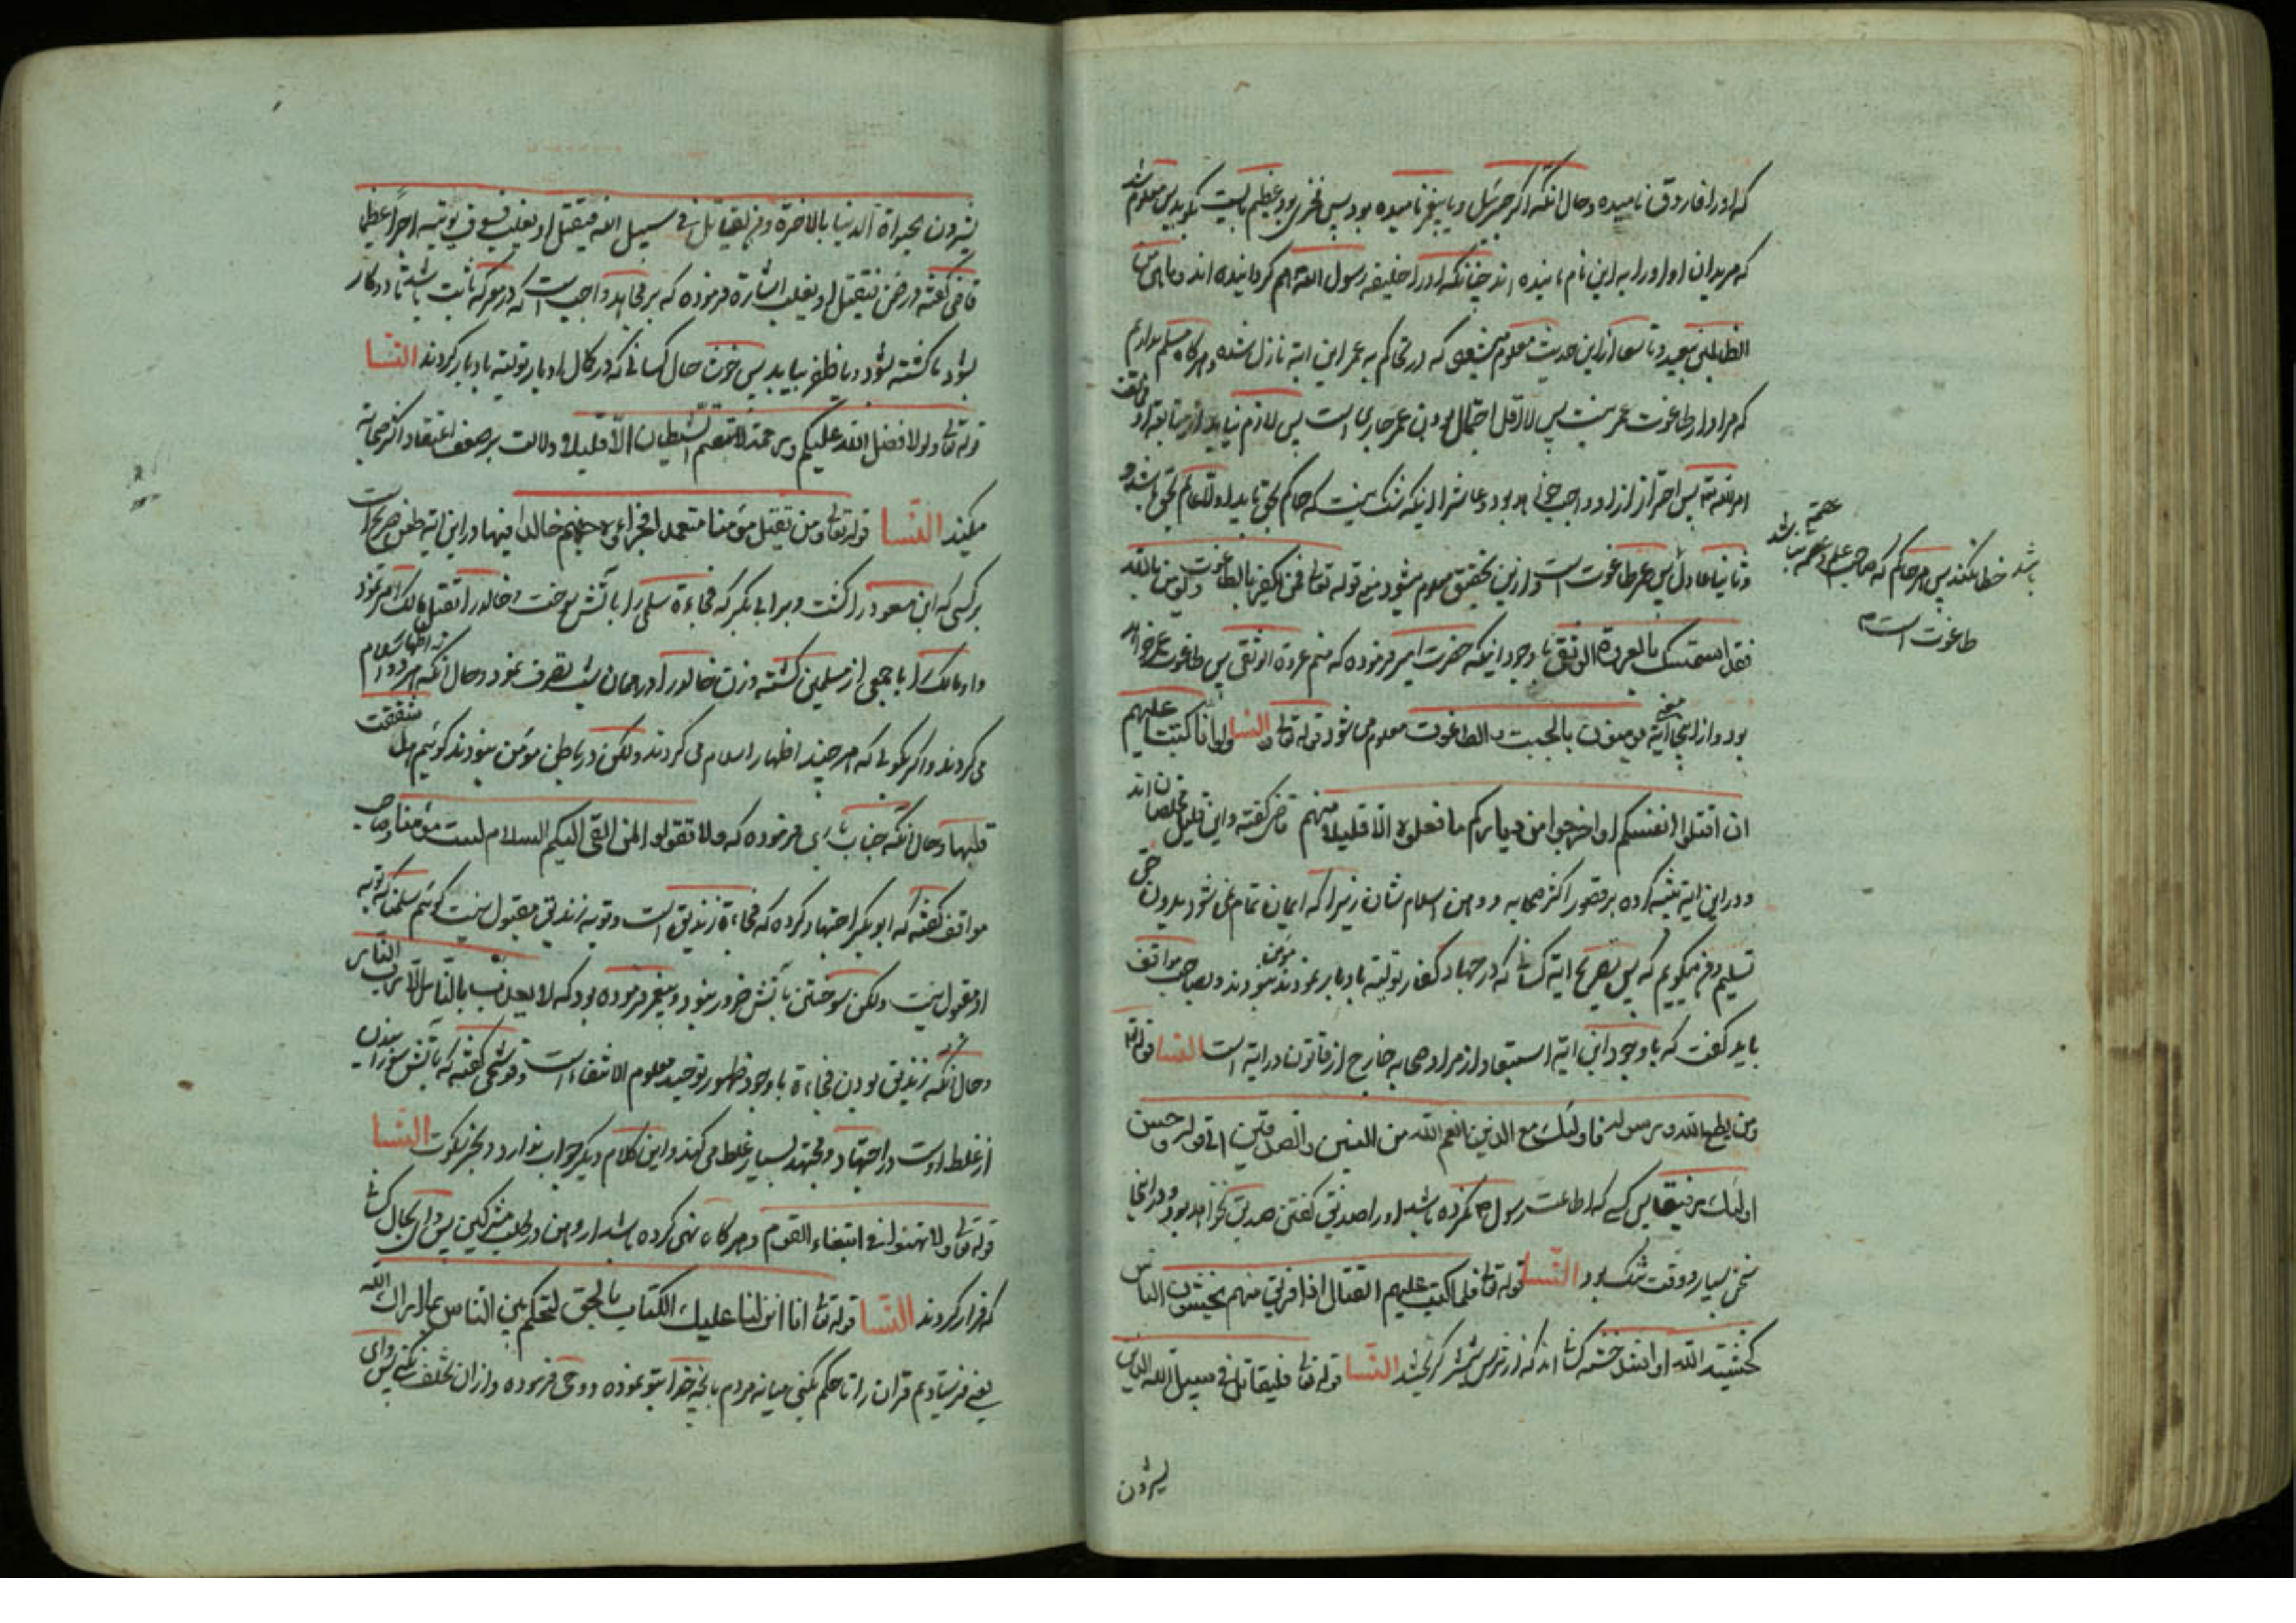 که او را فاروق نامیده و حال آنکه اگر جبرئیل و یا پیغمبر نامیده بود پس فخری بود عظیم بایست بگوید پس معلوم شد
که مریدان او او را به این نام نامیده اند چنانکه او را خلیفه رسول الله هم گردانیده اند و ما هی من
الظالمین ببعید و تاسعا از این حدیث معلوم میشود که در تحاکم به عمر این ایه نازل شده و هرگاه مسلم نداریم
که مراد از طاغوت عمر نیست پس لااقل احتمال بودن عمر جاری است پس لازم نیاید از متابعة او مخالفت
امر الله پس احتراز از او واجب خواهد بود و عاشرا اینکه شک نیست که حاکم بحق باید اولا عالم بحق باشد و
و ثانیا عادل پس عمر طاغوت است و از این تحقیق معلوم میشود معنی قوله تعالی فمن یکفر بالطاغوت و یؤمن بالله
فقد استمسک بالعروة الوثقی با وجود اینکه حضرت امیر فرموده که منم عروة الوثقی پس طاغوت عمر خواهد
بود و از اینجا معنی آیة یؤمنون بالجبت و الطاغوت معلوم می شود النسا قوله تعالی ولو انا کتبنا علیهم
ان اقتلوا انفسکم او اخرجوا من دیارکم ما فعلوه الا قلیلا منهم قاضی گفته و این قلیل مخلصان اند
و در این ایه تنبیه کرده بر قصور اکثر صحابه و وهن اسلام شان زیرا که ایمان تمام نمی شود بدون حق
تسلیم و فقیر میگویم که پس بصریح ایة کسانی که در جهاد کفار تولیه بادبار نمودند مؤمن نبودند و بصاحب مواقف
باید گفت که با وجود این ایه استبعاد از مراد صحابه خارج از قانون درایة است النسا قوله تعالی
ومن یطع الله و رسوله فاولئک مع الذین انعم الله من النبیین والصدیقین الی قوله و حسن
اولئک رفیقا پس کسی که اطاعت رسول ص نکرده باشد او را صدیق گفتن صدیق نخواهد بود و در اینجا
سخن بسیار و وقت تنک بود النسا قوله تعالی فلما کتب علیهم القتال اذا فریق منهم یخشون الناس
کخشیة الله او اشد خشیه کسانی اند که از ترس شمشیر گریختند النسا قوله تعالی فلیقاتل فی سبیل الله الذین
یشرون
باشد خطا نکند پس هر حاکم که صاحب علم و عصمة نباشد
طاغوت است
یشرون الحیواة الدنیا بالاخرة ومن یقاتل فی سبیل الله فیقتل او یغلب فسوف نوتیه اجرا عظیما
قاضی گفته در ضمن فیقتل او یغلب اشاره فرموده که بر مجاهد واجب است که در معرکه ثابت باشد تا دو کار
بشود یا کشته شود و یا ظفر بیابد پس خوش حال کسانی که در کل او بار تولیه بادبار کردند النسا
قوله تعالی ولولا فضل الله علیکم و رحمته لاتبعتم الشیطان الا قلیلا و دلالت بر ضعف اعتقاد اکثر صحابه
میکند النسا قوله تعالی و من یقتل مؤمنا متعمدا فجزاءه جهنم خالدا فیها و در این ایه طعن صریح است
بر کسی که ابن مسعود را کشت و بر ابی بکر که فجاءة سلمی را باتش سوخت و خالد را بقتل مالک امر نمود
و او مالک را با جمعی از مسلمین کشته و زن خالد را در همان شب تصرف نمود و حال آنکه هر دو اظهار اسلام
می کردند و اگر بگوئی که هر چند اظهار اسلام می کردند ولکن در باطن مؤمن نبودند گوئیم هل شققت
قلبها و حال آنکه جناب باری فرموده که ولا تقولوا لمن القی الیکم السلام لست مؤمنا و صاحب
مواقف گفته که ابو بکر اجتهاد کرده که فجاءة زندیق است و توبه زندیق مقبول نیست گوئیم سلمنا که توبه
او مقبول نیست ولکن سوختن باتش ضرور نبود و پیغمبر فرموده بود که لا یعذب بالنار الا رب النار
و حال آنکه زندیق بودن فجاءة با وجود ظهور توحید معلوم الانتفاء است و قوشچی گفته که باتش سوزانیدن
از غلط اوست در اجتهاد و مجتهد بسیار غلط می کند و این کلام دیگر جواب ندارد و بجز سکوت النسا
قوله تعالی ولا تهنوا فی ابتغاء القوم و هرگاه نهی کرده باشد از وهن در طلب مشرکین پس وای بحال کسانی
که فرار کردند النسا قوله تعالی انا انزلنا علیک الکتاب بالحق لتحکم بین الناس بما اراک الله
یعنی فرستادیم قران را تا حکم بکنی میانه مردم بانچه خدا بتو نموده و وحی فرموده و از ان تخلف نکنی پس وای